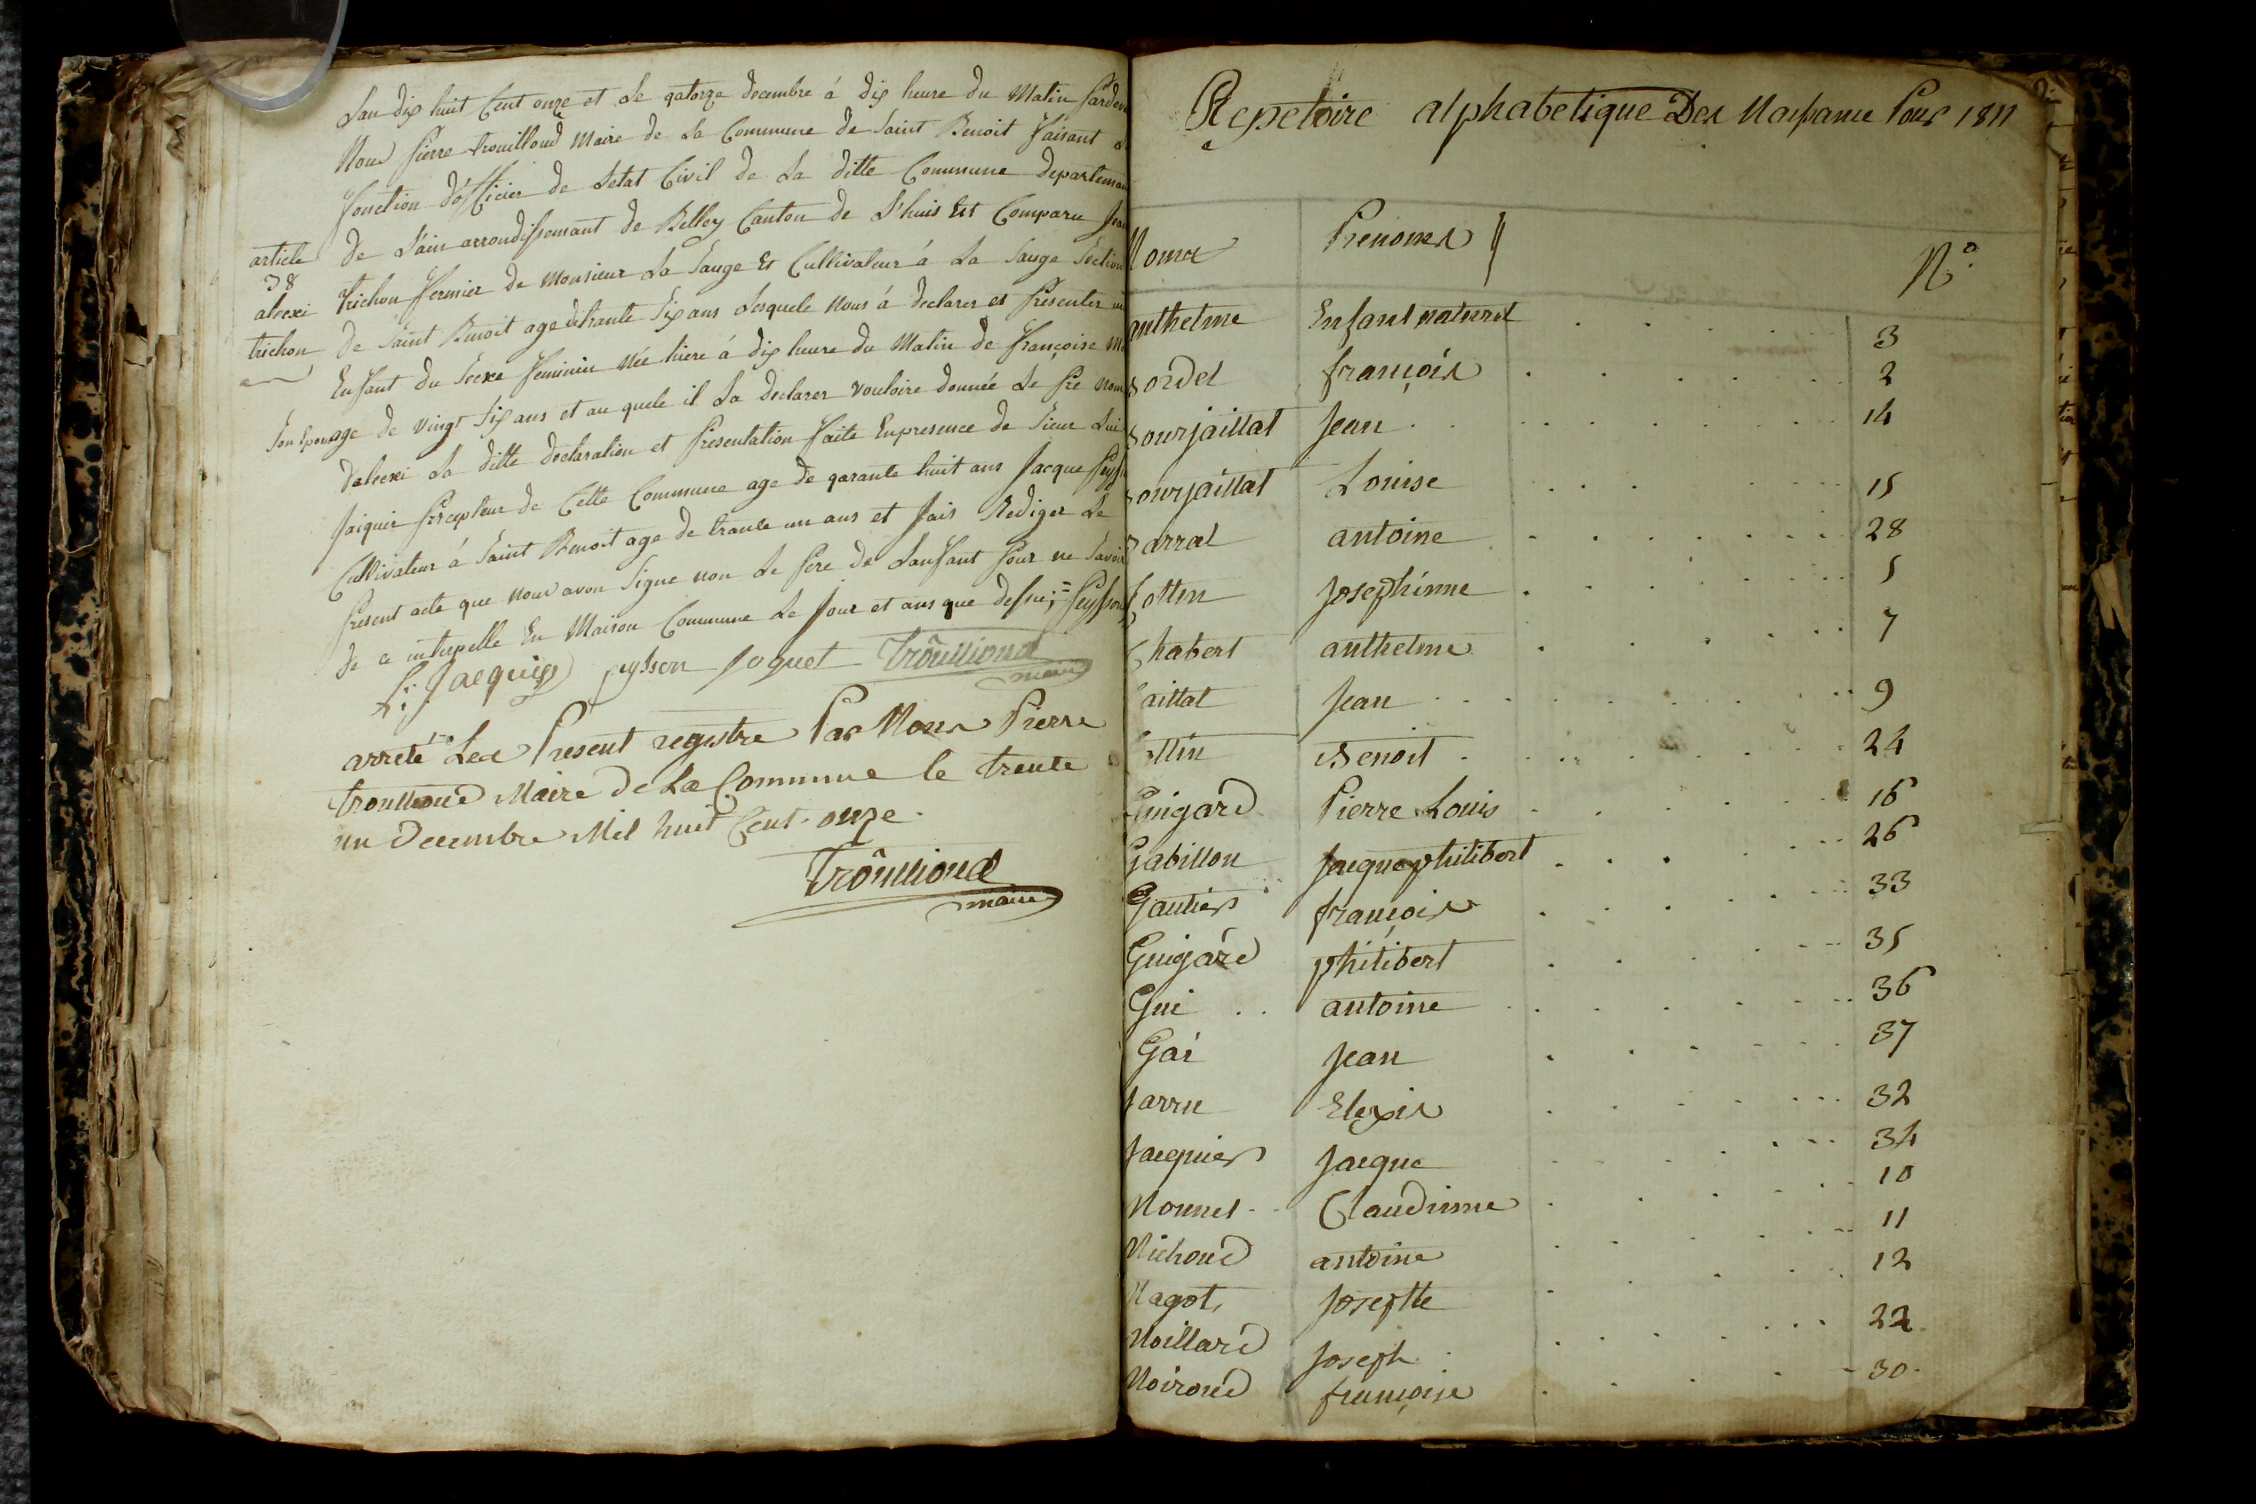 Lan dix huit Cent onze et Le qatorze decembre á dix heure du Matin Pardev
Nous Pierre trouilloud Maire de La Commune de Saint Benoit faisant
fonction d'officier de Letat Civil de La ditte Commune departeman
de L'ain arrondissemant de Belley Canton de L'huis Est Comparu Jean
article
38
alecxi
trichon
trichon fermier de Monsieur La Sauge Et Cultivateur á La Sauge Section
de Saint Benoit age detrante Six ans Lesquele Nous á declarer et Presenter un
Enfant du Secxe feminin Née hiere á dix heure du Matin de françoise
Son Epouse age de vingt Six ans et au quele il La declarer vouloire donnée Le Pré nom
dalecxi La ditte declaration et Presentation faite Enpresence de Sieur Lui
Jaiquier Percepteur de Cette Commune age de qarante huit ans Jacque Peyss
Cultivateur á Saint Benoit age de trante un ans et fais Rediger Le
Present acte que nous avon Signe non Le Pere de Lanfant Pour ne Savoir
de ce interpelle En Maison Commune Le Jour et ans que dessus = Peysson
L: Jacquier peysson joquet Trôuilloud
maire
arreté Lee Present registre Par Nous Pierre
trouilloud Maire de La Commune le trente
un Decembre Mil huit Cent onze
Trôuilloud
maire
Repetoire alphabetique Des Naissance Pour 1811
Noms Prenoms N.º
anthelme Enfant naturel 3
Bordel françois 2
Bourjaillat Jean 14
Bourjaillat Louise 15
Barral antoine 28
Cottin Josephinne 5
Chabert anthelme 7
Caillat Jean 9
Cottin Benoit 24
Guigard Pierre Louis 16
Gabillon Jacque philibert 26
Gautier françois 33
Guigard philibert 35
Gui antoine 36
Gai Jean 37
Jarrin Elexis 32
Jacquier Jacque 34
Monnet Claudinne 10
Michoud antoine 11
Magot Josephte 12
Moillard Joseph 22
Moiroud françoise 30